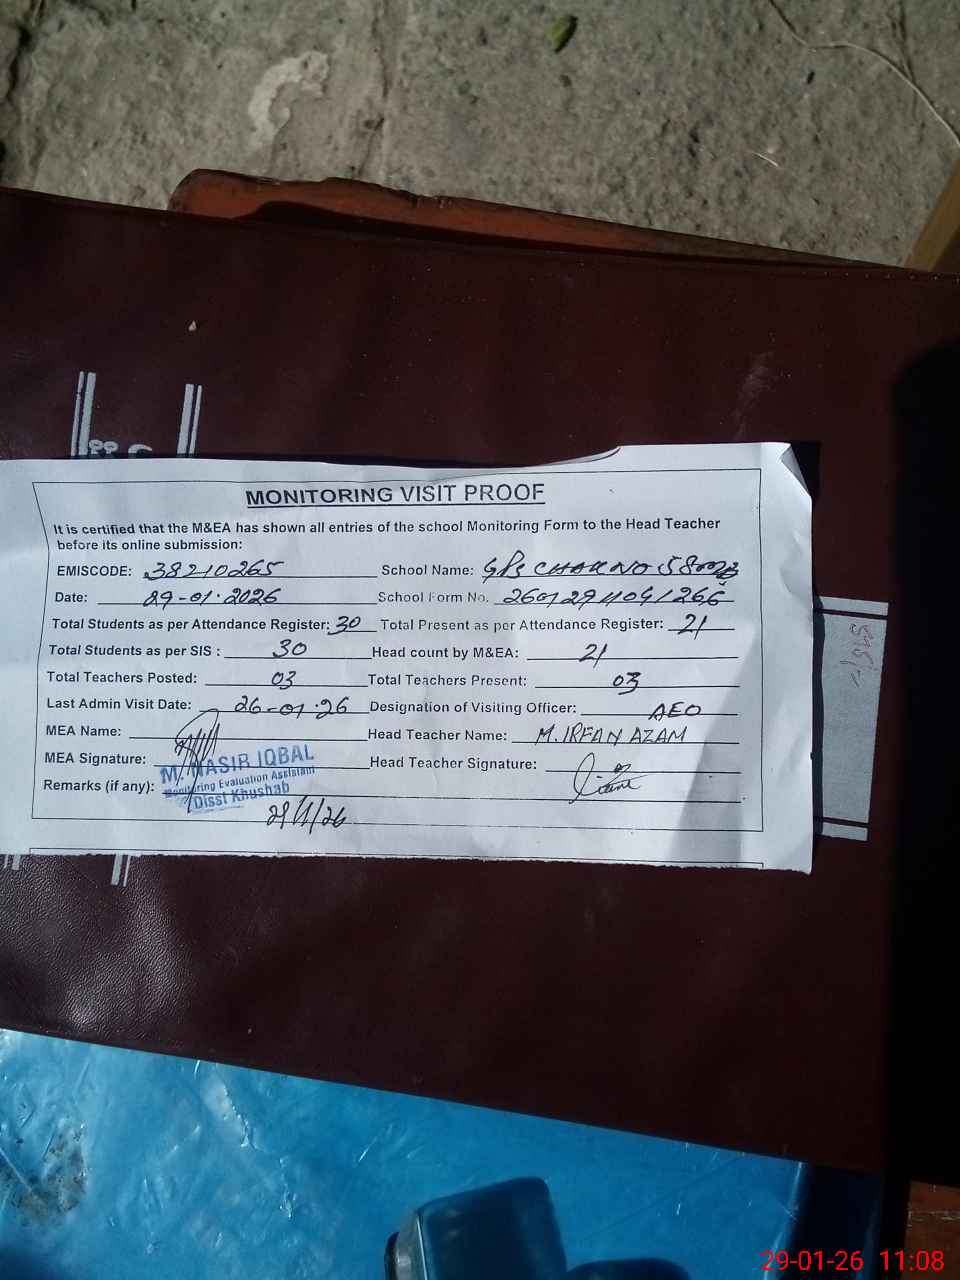 MONITORING VISIT PROOF
It is certified that the M&EA has shown all entries of the school Monitoring Form to the Head Teacher
before its online submission:
EMISCODE: 38210265 School Name: GPS CHAK NO 58 MB
Date: 29-01-2026 School Form No. 260129110941266
Total Students as per Attendance Register: 30 Total Present as per Attendance Register: 21
Total Students as per SIS : 30 Head count by M&EA: 21
Total Teachers Posted: 03 Total Teachers Present: 03
Last Admin Visit Date: 26-01-26 Designation of Visiting Officer: AEO
MEA Name: Head Teacher Name: M. IRFAN AZAM
MEA Signature: Head Teacher Signature:
M. NASIR IQBAL
Monitoring Evaluation Assistant
Remarks (if any): Disst Khushab
29/1/26
29-01-26 11:08